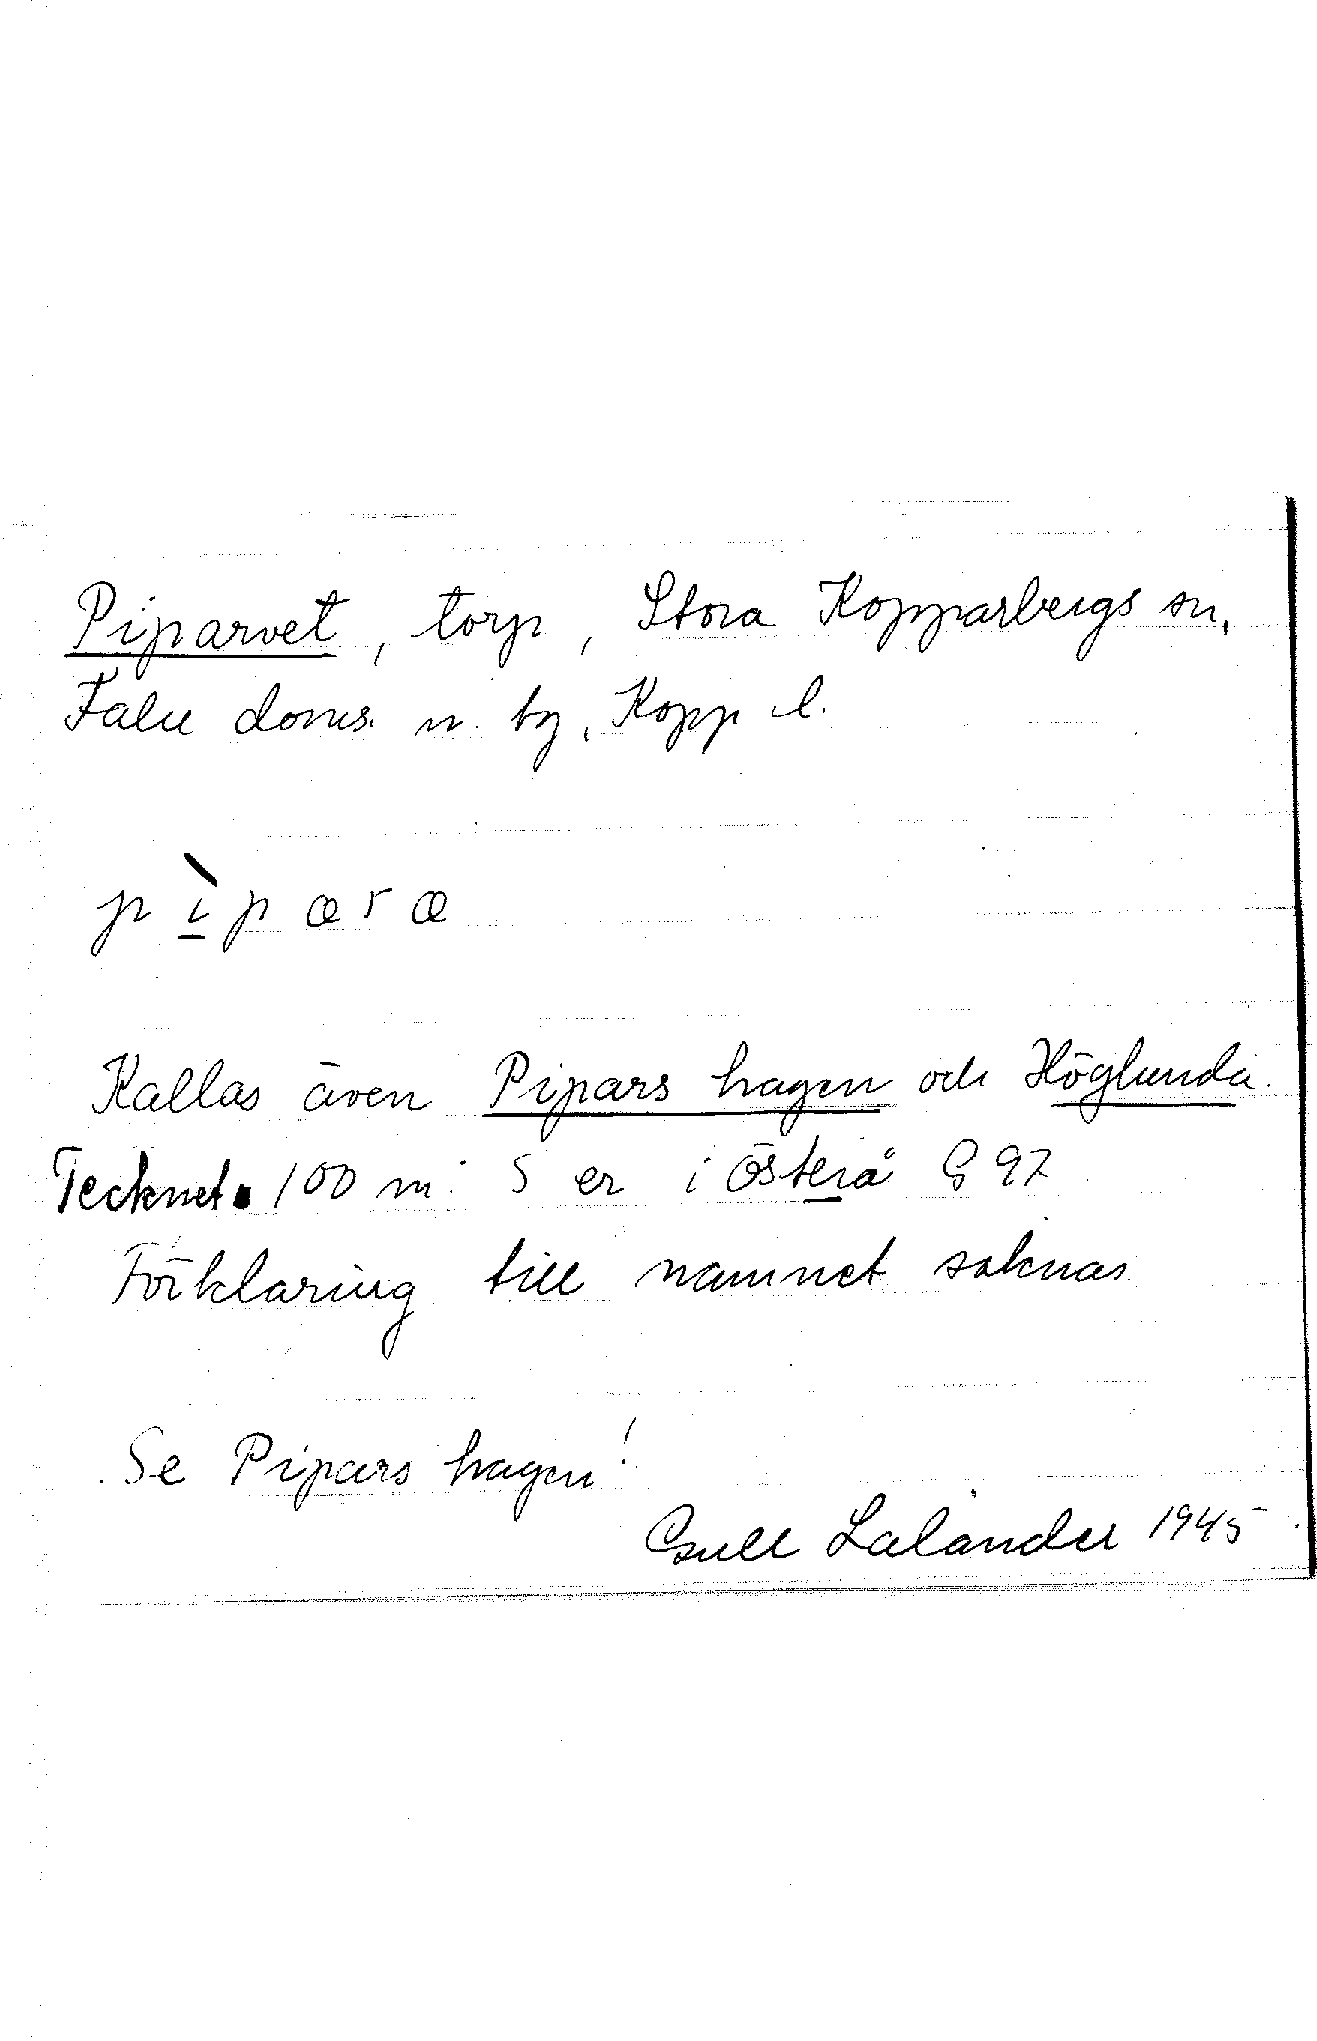 Piparvet, torp, Stora Kopparbergs sn,
Falu doms. n. by, Kopp l.
pìpæræ
Kallas även Pipars hagen och Höglunda.
Tecknet ■ 100 m S er i Österå G 97
Förklaring till namnet saknas
Se Pipars hagen!
Gull Lalander 1945